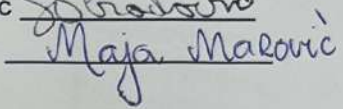 c
Maja Marović